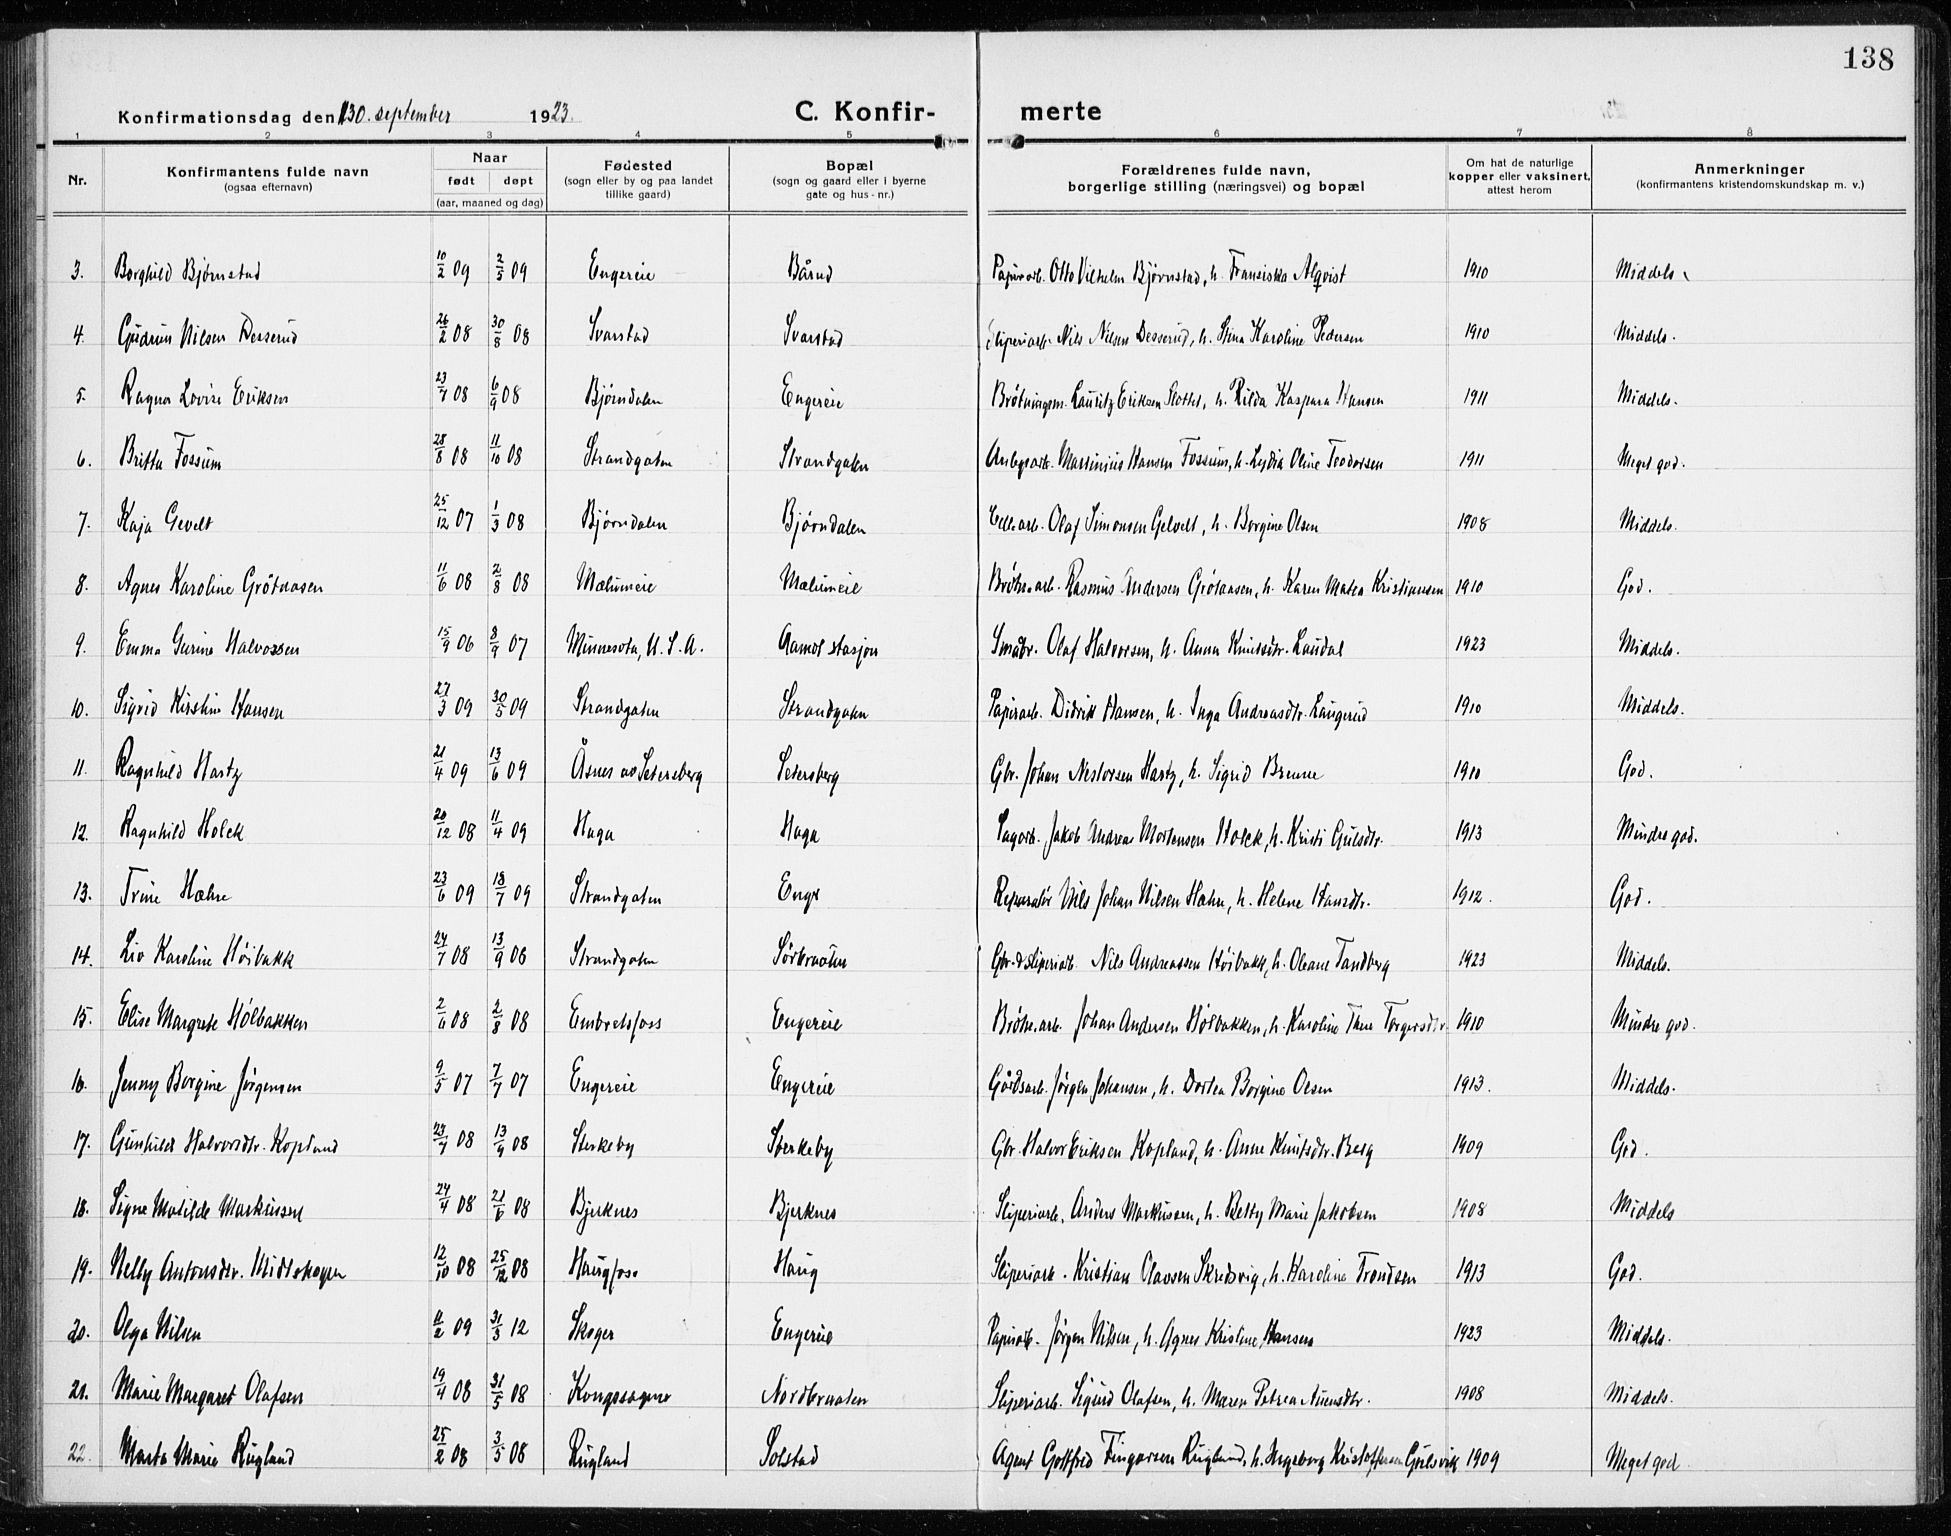 138
Konfirmationsdag den 30. september 1923. C. Konfir- merte
1 2 3 4 5 6 7 8
Nr. Konfirmantens fulde navn (ogsaa efternavn) Naar født døpt (aar, maaned og dag) Fødested (sogn eller by og paa landet tillike gaard) Bopæl (sogn og gaard eller i byerne gate og hus-nr.) Forældrenes fulde navn, borgerlige stilling (næringsvei) og bopæl Om hat de naturlige kopper eller vaksinert, attest herom Anmerkninger (konfirmantens kristendomskundskap m. v.)
3. Borghild Bjørnstad 10/2 09 2/5 09 Engereie Bårud Papirarb. Otto Vilhelm Bjørnstad, h. Fransiska Alqvist 1910 Middels
4. Gudrun Nilsen Desserud 26/2 08 30/8 08 Svarstad Svarstad Sliperiarb. Nils Nilsen Desserud, h. Stina Karoline Pedersen 1910 Middels.
5. Ragna Lovise Eriksen 23/7 08 6/9 08 Bjørndalen Engereie Brøtningsm. Lauritz Eriksen Slottet, h. Rilda Kaspara Hansen 1911 Middels.
6. Britta Fossum 28/8 08 11/10 08 Strandgaten Strandgaten Anlegsarb. Martinius Hansen Fossum, h. Lydia Oline Teodorsen 1911 Meget god.
7. Kaja Gevelt 25/12 07 1/3 08 Bjørndalen Bjørndalen Cell.arb. Olaf Simonsen Gelvelt, h. Borgine Olsen 1908 Middels.
8. Agnes Karoline Grøtaasen 11/6 08 2/8 08 Mælumeie Mælumeie Brøtn.arb. Rasmus Andersen Grøtaasen, h. Karen Matea Kristiansen 1910 God.
9. Emma Gurine Halvorsen 15/9 06 8/9 07 Minnesota, U.S.A. Aamot stasjon Småbr. Olaf Halvorsen, h. Anna Knutsdtr. Laudal 1923 Middels.
10. Sigrid Kirstine Hansen 27/3 09 30/5 09 Strandgaten Strandgaten Papirarb. Didrik Hansen, h. Inga Andreasdtr. Laugerud 1910 Middels.
11. Ragnhild Hartz 21/4 09 13/6 09 Åsnes av Setersberg Setersberg Gbr. Johan Nestorsen Hartz, h. Sigrid Brenne 1910 God.
12. Ragnhild Holck 20/12 08 11/4 09 Haga Haga Sagarb. Jakob Andreas Mortensen Holck, h. Kristi Gulsdtr. 1913 Mindre god.
13. Trine Hæhre 23/6 09 18/7 09 Strandgaten Enge Reparatør Nils Johan Nilsen Hæhre, h. Helene Hansdtr. 1912. God.
14. Liv Karoline Høibakk 24/7 08 13/9 08 Strandgaten Sørbraaten Gbr. & sliperiarb. Nils Andreassen Høibakk, h. Oleane Tandberg 1923 Middels.
15. Elise Margrete Hølbakken 2/6 08 2/8 08 Embretsfoss Engereie Brøtn.arb. Johan Andersen Hølbakken, h. Karoline Thea Torgersdtr. 1910 Mindre god.
16. Jenny Borgine Jørgensen 9/5 07 7/7 07 Engereie Engereie Gårdsarb. Jørgen Johansen, h. Dortea Borgine Olsen 1913. Middels.
17. Gunhild Halvorsdtr. Kopland 24/7 08 13/9 08 Sterkeby Sterkeby Gbr. Halvor Eriksen Kopland, h. Anne Knutsdtr. Berg 1909 God.
18. Signe Matilde Markussen 24/4 08 21/6 08 Bjerknes Bjerknes Sliperiarb. Anders Markussen, h. Betty Marie Jakobsen 1908 Middels
19. Nelly Antonsdtr. Midtskogen 12/10 08 25/12 08 Haugfoss Haug Sliperiarb. Kristian Olavsen Skredsvig, h. Karoline Trondsen 1913 God.
20. Olga Nilsen 11/2 09 31/3 12 Skoger Engereie Papirarb. Jørgen Nilsen, h. Agnes Kristine Hansen 1923 Middels.
21. Marie Margaret Olafsen 19/4 08 31/5 08 Kongssagene Nordbraaten Sliperiarb. Sigurd Olafsen, h. Maren Petrea 1908 Middels.
22. Marta Marie Rugland 25/2 08 3/5 08 Rugland Solstad Agent Gottfred Fingarsen Rugland, h. Ingeborg Kristoffersen Gulsvik 1909 Meget god